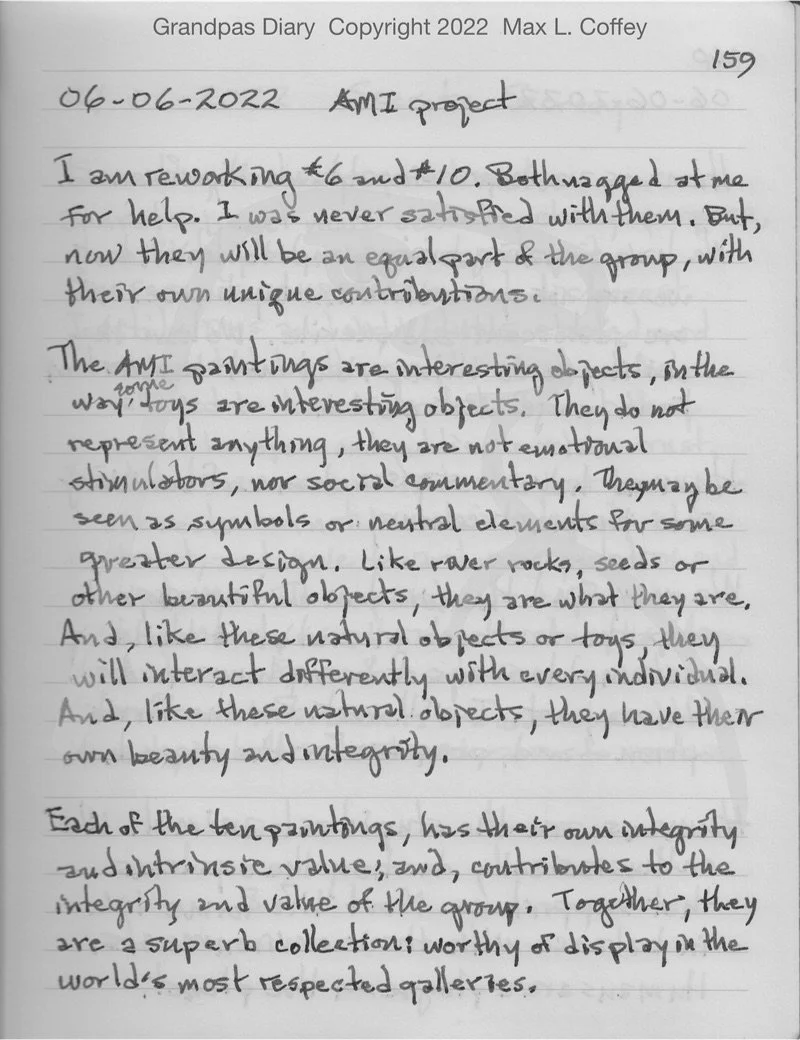 Grandpas Diary Copyright 2022 Max L. Coffey
159
06-06-2022 AMI project
I am reworking #6 and #10. Both nagged at me
for help. I was never satisfied with them. But,
now they will be an equal part of the group, with
their own unique contributions.
The AMI paintings are interesting objects, in the
some
way, toys are interesting objects. They do not
represent anything, they are not emotional
stimulators, nor social commentary. They may be
seen as symbols or neutral elements for some
greater design. Like river rocks, seeds or
other beautiful objects, they are what they are.
And, like these natural objects or toys, they
will interact differently with every individual.
And, like these natural objects, they have their
own beauty and integrity.
Each of the ten paintings, has their own integrity
and intrinsic value; and, contributes to the
integrity and value of the group. Together, they
are a superb collection: worthy of display in the
world's most respected galleries.